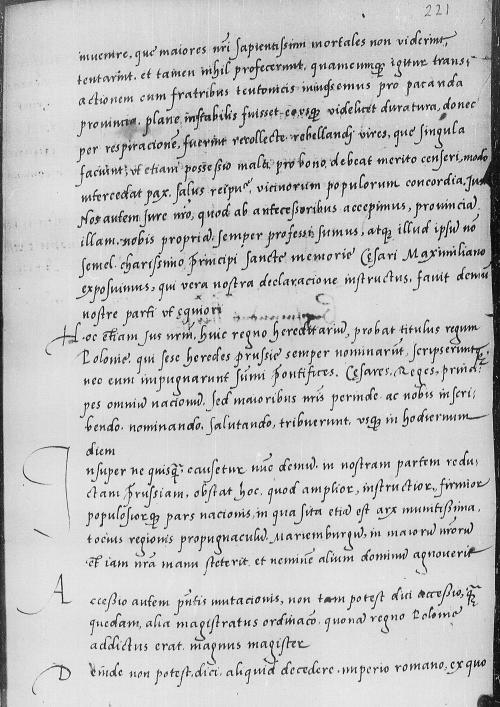 221
inuenire, que maiores nri sapientissimi mortales non viderint,
tentarint, et tamen nihil profecerunt, quamcumq igitur trans
actionem cum fratribus teutonicis inivissemus pro pacanda
provincia, plane instabilis fuisset eousq videlicet duratura, donec
per respiracione, fuerint recollecte rebellandi vires, que singula
faciunt, vt etiam possessio mali, pro bono, debeat merito censeri, modo
intercedat pax, salus reipue, vicinorum populorum concordia, Jus
Nos autem iure nro, quod ab antecessoribus accepimus, provincia
illam, nobis propria, semper professi sumus, atq illud ipsu no
semel charissimo Principi sancte memorie Cesari Maximiliano
exposuimus, qui vera nostra declaracione instructus, favit demu
nostre parti vt equiori
Hoc etiam Jus nrm, huic regno hereditariu, probat titulus regum
Polonie, qui sese heredes prussie semper nominarut, scripserunt
nec eum impugnarunt summi Pontifices, Cesares, Reges, princi
pes omniu nacionu, sed maioribus nris perinde ac nobis inscri
bendo, nominando, salutando, tribuerunt, vsq in hodiernum
diem
Insuper ne quisq causetur nuc demu, in nostram partem redu
ctam Prussiam, obstat hoc, quod amplior, instructior, firmior
populosiorq pars nacionis, in qua sita etia est arx munitissima,
tocius regionis propugnaculu, Marienburgu, in maioru nrorum
et iam nra manu steterit, et nemine alium dominu agnoverit
Accessio autem pntis mutacionis, non tam potest dici accessio, q
quedam, alia magistratus ordinacio, quonam regno Polonie
addictus erat, magnus magister
Deinde non potest, dici, aliquid decedere, imperio romano, ex quo